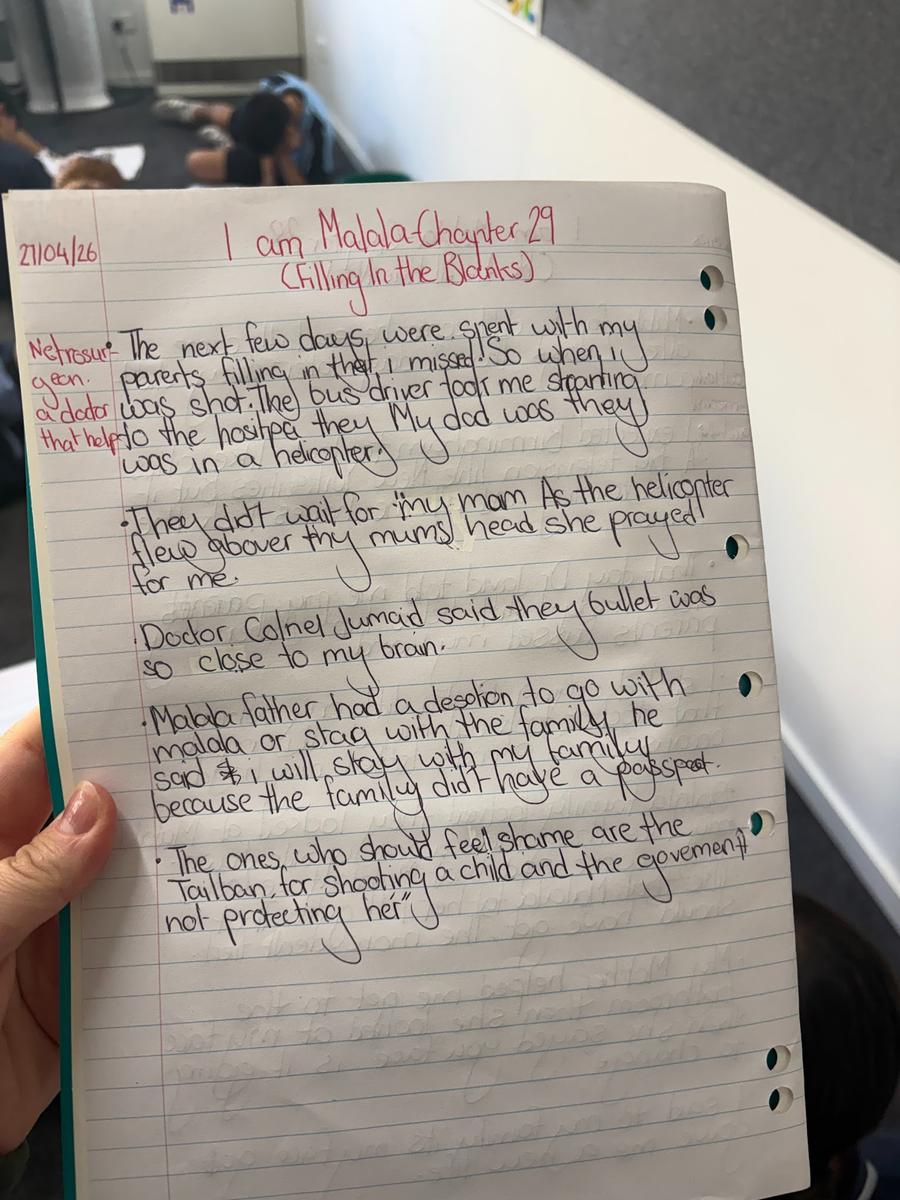 27/04/26
I am Malala-Chapter 29
(Filling In the Blanks)
Netrosur-
geon.
a doctor
that help
• The next few days, were spent with my
parents filling in that i missed! So when i
was shot. The bus driver took me starting
to the hositpa they My dad was they
was in a helicopter.
• They did't wait for "my mam As the helicopter
flew abover my mums head she prayed
for me.
• Doctor Colnel Jumaid said they bullet was
so close to my brain.
• Malala father had a desotion to go with
malala or stag with the family he
said i will stay with my family
because the family did't have a passpot.
• The ones, who should feel shame are the
Tailban, for shooting a child and the goverment
not protecting her"